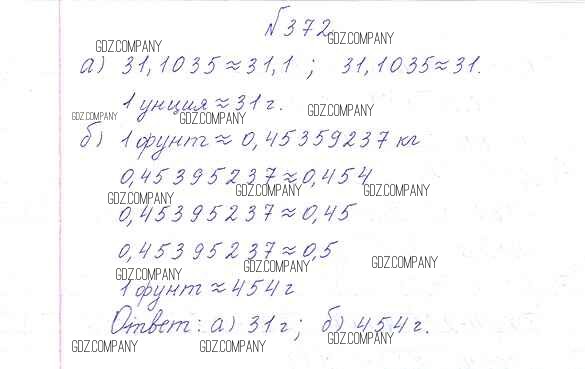 №372.
GDZ.COMPANY GDZ.COMPANY
а) 31,1035≈31,1 ; 31,1035≈31.
1 унция≈31г.
GDZ.COMPANY GDZ.COMPANY GDZ.COMPANY
б) 1 фунт≈0,45359237 кг
0,45395237≈0,454
GDZ.COMPANY GDZ.COMPANY GDZ.COMPANY
0,45395237≈0,45
0,45395237≈0,5
GDZ.COMPANY GDZ.COMPANY GDZ.COMPANY
1 фунт≈454г
Ответ: а) 31г; б) 454г.
GDZ.COMPANY GDZ.COMPANY GDZ.COMPANY